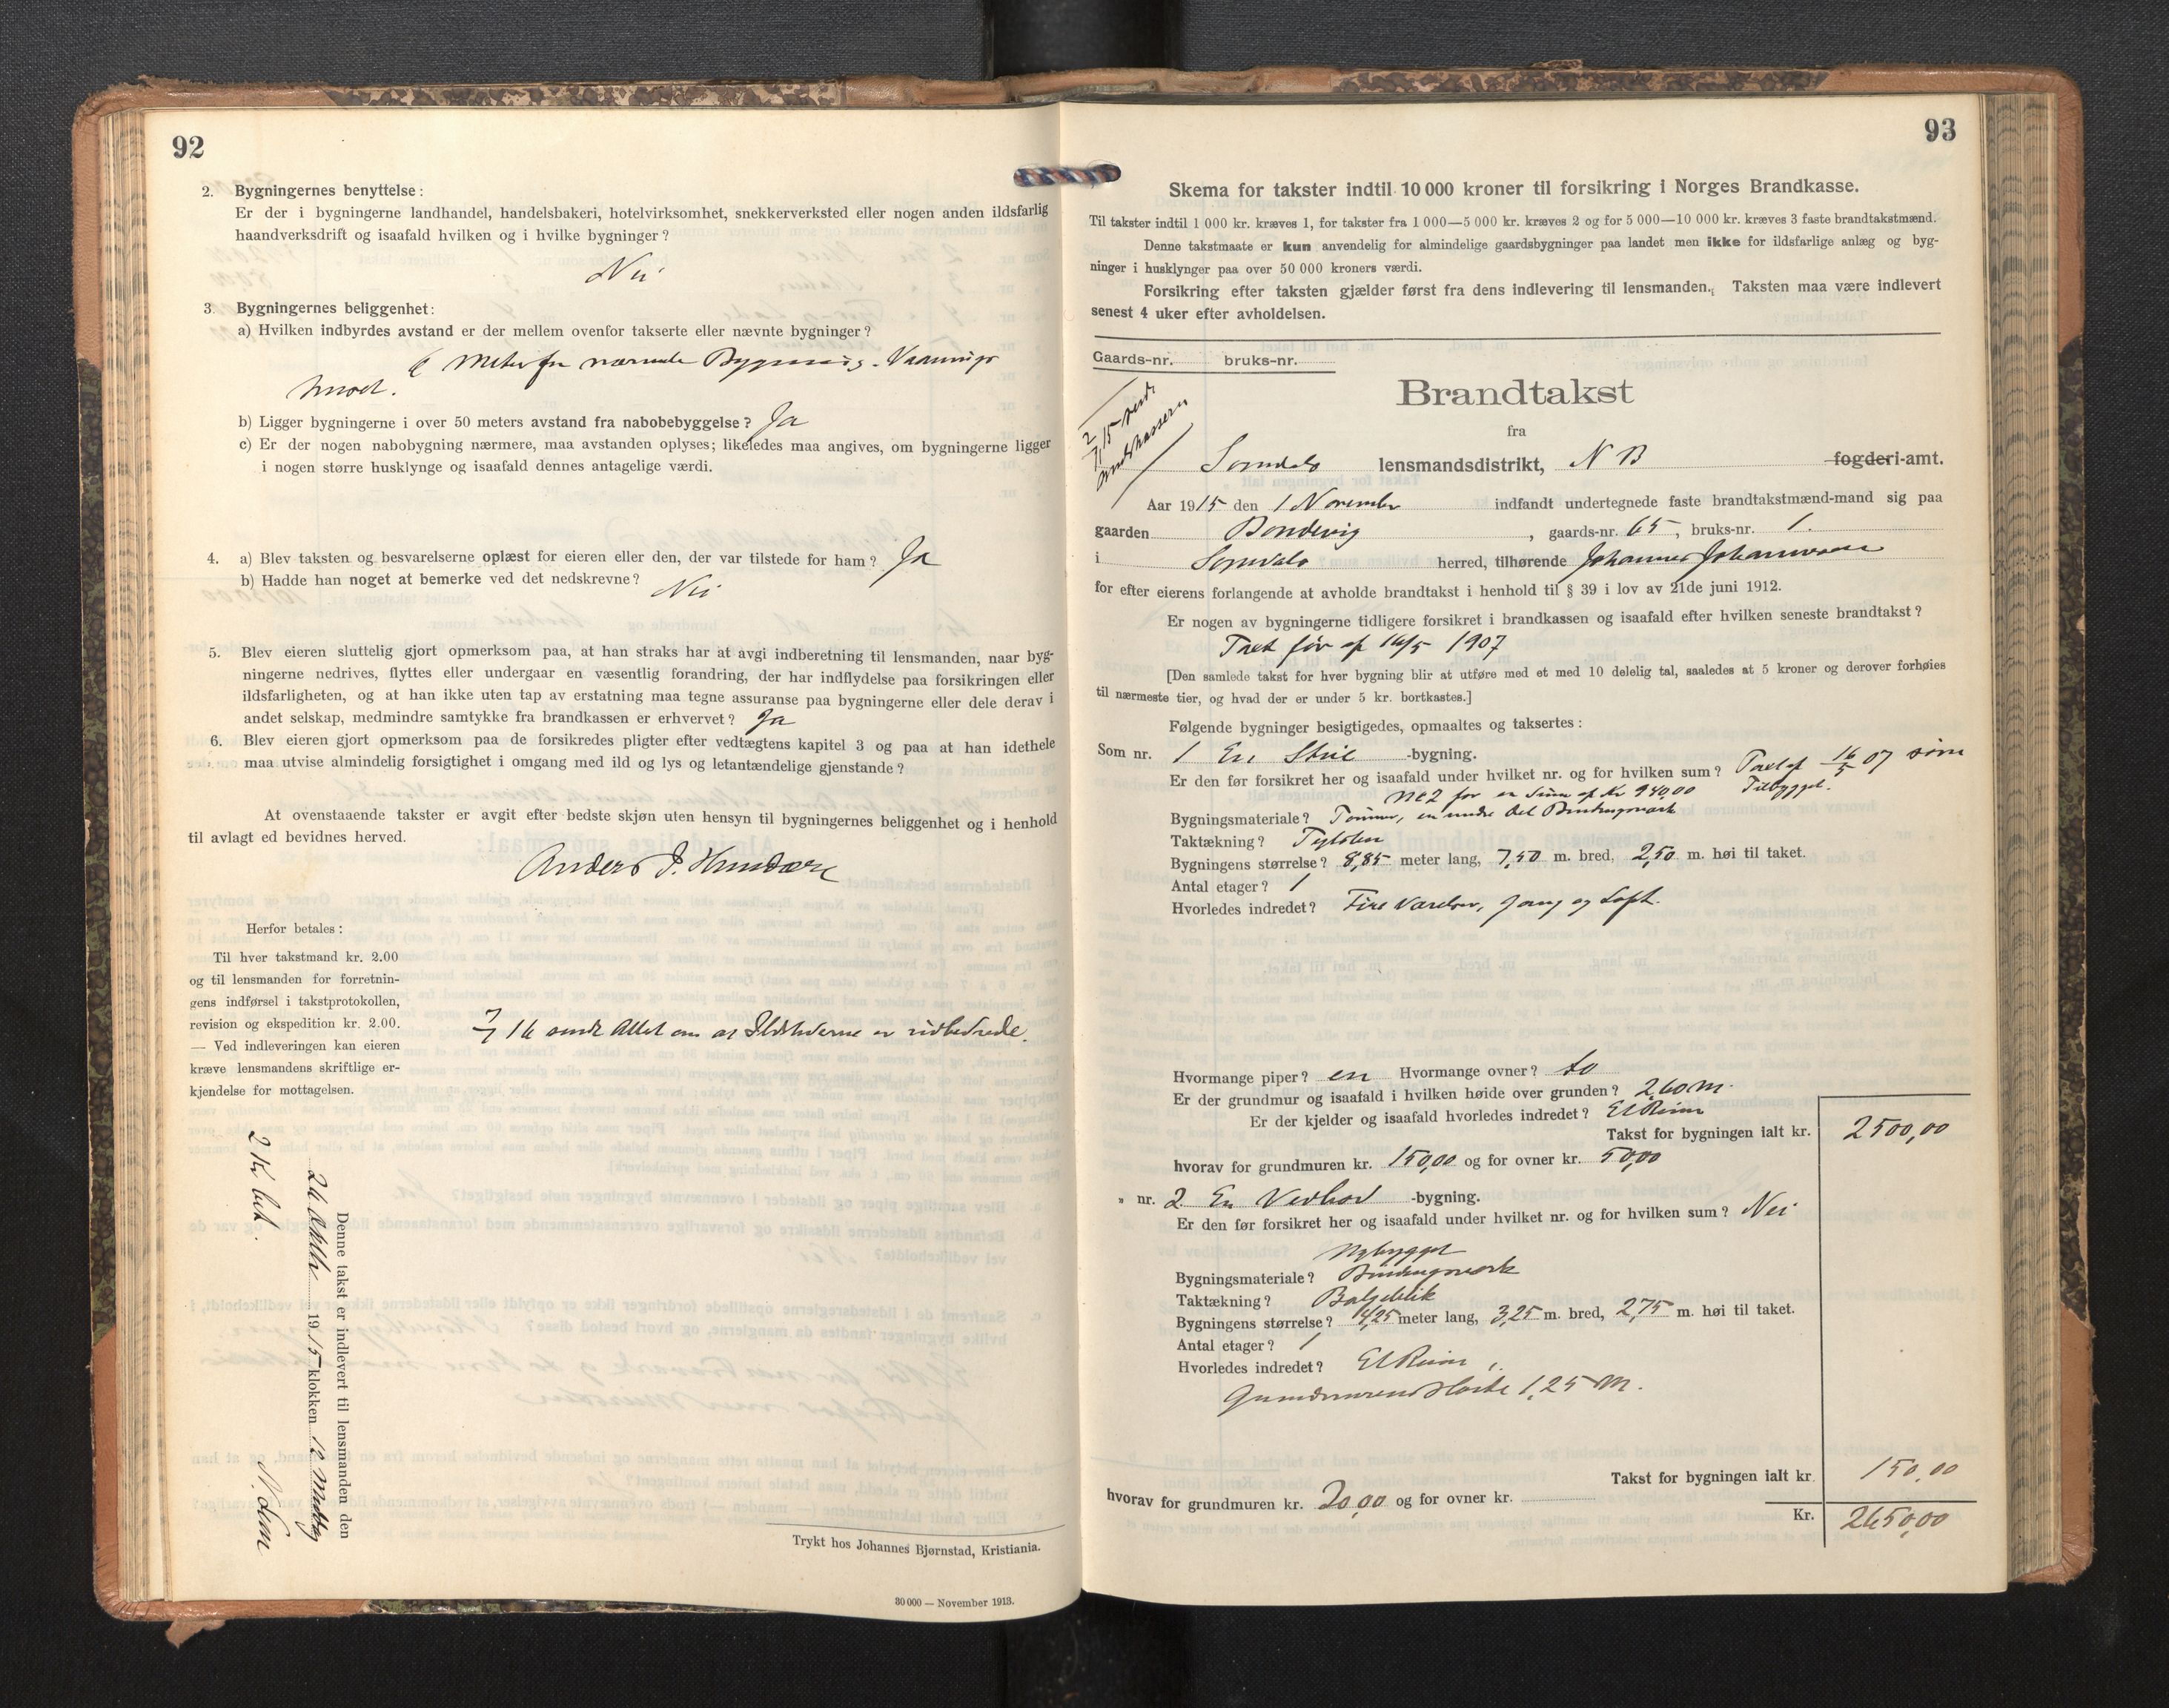 92
2. Bygningernes benyttelse:
Er der i bygningerne landhandel, handelsbakeri, hotelvirksomhet, snekkerverksted eller nogen anden ildsfarlig
haandverksdrift og isaafald hvilken og i hvilke bygninger?
Nei
3. Bygningernes beliggenhet:
a) Hvilken indbyrdes avstand er der mellem ovenfor takserte eller nævnte bygninger?
6 Meter fra nærmeste Bygning - Vaanings
huset.
b) Ligger bygningerne i over 50 meters avstand fra nabobebyggelse? Ja
c) Er der nogen nabobygning nærmere, maa avstanden oplyses; likeledes maa angives, om bygningerne ligger
i nogen større husklynge og isaafald dennes antagelige værdi.
4. a) Blev taksten og besvarelserne oplæst for eieren eller den, der var tilstede for ham? Ja
b) Hadde han noget at bemerke ved det nedskrevne? Nei
5. Blev eieren sluttelig gjort opmerksom paa, at han straks har at avgi indberetning til lensmanden, naar byg-
ningerne nedrives, flyttes eller undergaar en væsentlig forandring, der har indflydelse paa forsikringen eller
ildsfarligheten, og at han ikke uten tap av erstatning maa tegne assuranse paa bygningerne eller dele derav i
andet selskap, medmindre samtykke fra brandkassen er erhvervet? Ja
6. Blev eieren gjort opmerksom paa de forsikredes pligter efter vedtægtens kapitel 3 og paa at han idethele
maa utvise almindelig forsigtighet i omgang med ild og lys og letantændelige gjenstande?
At ovenstaaende takster er avgit efter bedste skjøn uten hensyn til bygningernes beliggenhet og i henhold
til avlagt ed bevidnes herved.
Anders J.
Herfor betales:
Til hver takstmand kr. 2.00
og til lensmanden for forretnin-
gens indførsel i takstprotokollen,
revision og ekspedition kr. 2.00.
— Ved indleveringen kan eieren
kræve lensmandens skriftlige er-
kjendelse for mottagelsen.
7/7 16 sendt Attest om at Ildstederne er utbedrede.
Denne takst er indlevert til lensmanden den
26 1915 klokken 12 Middag
2 Kr bet.
Trykt hos Johannes Bjørnstad, Kristiania.
30 000 — November 1913.
93
Skema for takster indtil 10 000 kroner til forsikring i Norges Brandkasse.
Til takster indtil 1 000 kr. kræves 1, for takster fra 1 000—5 000 kr. kræves 2 og for 5 000—10 000 kr. kræves 3 faste brandtakstmænd.
Denne takstmaate er kun anvendelig for almindelige gaardsbygninger paa landet men ikke for ildsfarlige anlæg og byg-
ninger i husklynger paa over 50 000 kroners værdi.
Forsikring efter taksten gjælder først fra dens indlevering til lensmanden. Taksten maa være indlevert
senest 4 uker efter avholdelsen.
Gaards-nr. bruks-nr.
Brandtakst
fra
lensmandsdistrikt, N B fogderi-amt.
Aar 1915 den 1 November indfandt undertegnede faste brandtakstmænd-mand sig paa
gaarden Bondevig, gaards-nr. 65, bruks-nr. 1.
i herred, tilhørende Johannes Johannessen
for efter eierens forlangende at avholde brandtakst i henhold til § 39 i lov av 21de juni 1912.
Er nogen av bygningerne tidligere forsikret i brandkassen og isaafald efter hvilken seneste brandtakst?
Taxt før af 16/5 1907
[Den samlede takst for hver bygning blir at utføre med et med 10 delelig tal, saaledes at 5 kroner og derover forhøies
til nærmeste tier, og hvad der er under 5 kr. bortkastes.]
Følgende bygninger besigtigedes, opmaaltes og taksertes:
Som nr. 1 En Stue -bygning.
Er den før forsikret her og isaafald under hvilket nr. og for hvilken sum? Taxt af 16/5 07 som
No 2 for en Sum af Kr 940,00 Tilbygget.
Bygningsmateriale? Tømmer, en mindre del Bindingsværk
Taktækning? Teglsten
Bygningens størrelse? 8,85 meter lang, 7,50 m. bred, 2,50 m. høi til taket.
Antal etager? 1
Hvorledes indredet? Fire Værelser, Gang og Loft.
Hvormange piper? en Hvormange ovner? to
Er der grundmur og isaafald i hvilken høide over grunden? 2,60 m.
Er der kjelder og isaafald hvorledes indredet? Et Rum
Takst for bygningen ialt kr. 2500,00
hvorav for grundmuren kr. 150,00 og for ovner kr. 50,00
" nr. 2 En Vedhus -bygning.
Er den før forsikret her og isaafald under hvilket nr. og for hvilken sum? Nei
Nybygget
Bygningsmateriale? Bindingsværk
Taktækning? Bølgeblik
Bygningens størrelse? 6,25 meter lang, 3,25 m. bred, 2,75 m. høi til taket.
Antal etager? 1
Hvorledes indredet? Et Rum
Grundmurens Høide 1,25 M.
Takst for bygningen ialt kr. 150,00
hvorav for grundmuren kr. 20,00 og for ovner kr.
Kr. 2650,00